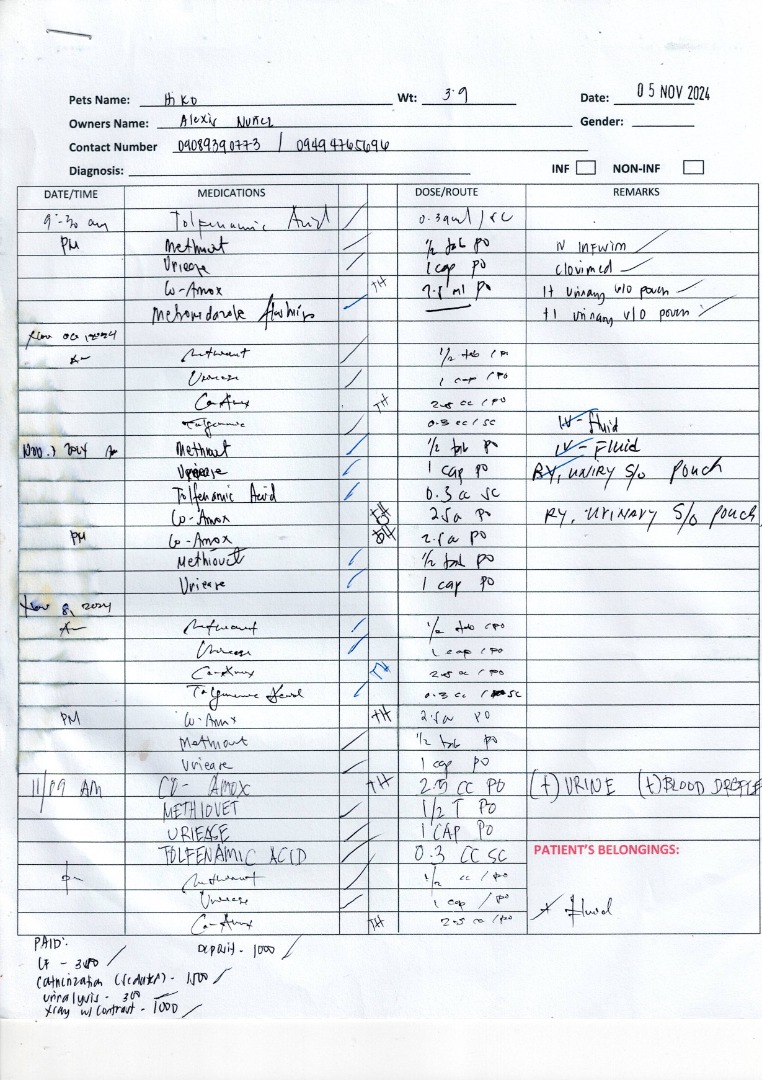 Pets Name: Hiko Wt: 3.9 Date: 05 NOV 2024
Owners Name: Alexis Nuñez Gender:
Contact Number 09089390773 / 09494765696
Diagnosis: INF NON-INF
DATE/TIME MEDICATIONS DOSE/ROUTE REMARKS
9:30 am Tolfenamic Acid / SC
PM Methiovet 1/2 tab PO
Uriease 1 cap PO
Co-Amox TH 2.5 ml PO clovimed
Metronidazole flushing 1+ urinary w/o pouch
+1 urinary w/o pouch
Methiovet 1/2 tab / PO
Uriease 1 cap / PO
Co-Amox TH 2.5 cc / PO
0.3 cc / SC IV-Fluid
Nov. 7 2024 Methiovet 1/2 tab PO IV-Fluid
Uriease 1 cap PO S/O Pouch
Tolfenamic Acid 0.3 cc SC
Co-Amox 2.5 cc PO URINARY S/O pouch
PM Co-Amox 2.5 cc PO
Methiovet 1/2 tab PO
Uriease 1 cap PO
Nov 8, 2024
Methiovet 1/2 tab / PO
Uriease 1 cap / PO
Co-Amox 2.5 cc / PO
0.3 cc / SC
PM Co-Amox TH 2.5 cc PO
Methiovet 1/2 tab PO
Uriease 1 cap PO
11/09 AM CO-Amox TH 2.5 CC PO (+) URINE (+) BLOOD
METHIOVET 1/2 T PO
URIEASE 1 CAP PO
TOLFENAMIC ACID 0.3 CC SC PATIENT'S BELONGINGS:
Methiovet 1/2 / PO
Uriease 1 cap / PO
Co-Amox TH 2.5 cc / PO fluid
PAID: Deposit - 1000
- 1500
urinalysis - 300
xray w/ contrast - 1000